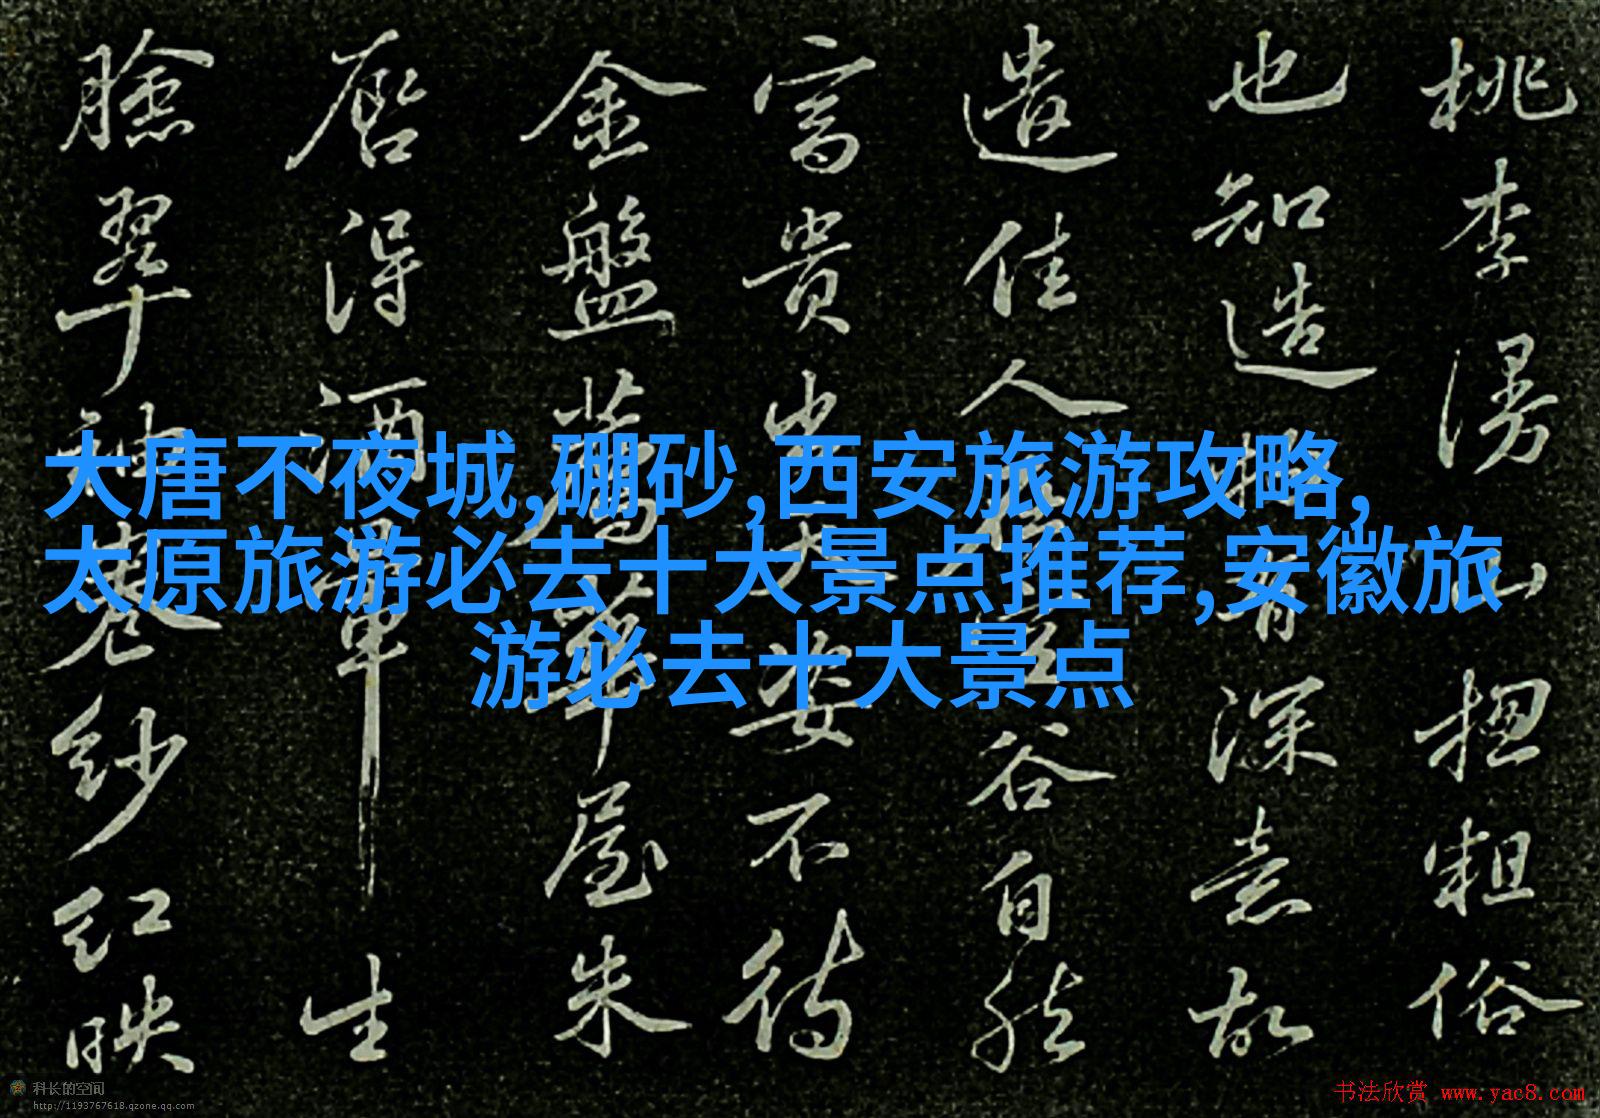 大唐不夜城,硼砂,西安旅游攻略,
太原旅游必去十大景点推荐,安徽旅
游必去十大景点
桃李漫山揔粗俗
也知造物有深意故
遣佳人在空谷自然
富貴出天姿不待
金盤薦華屋朱
唇得酒暈生
臉翠袖卷紗紅映
科长的空间
http://1193767618.qzone.qq.com
书法欣赏 www.yac8.com